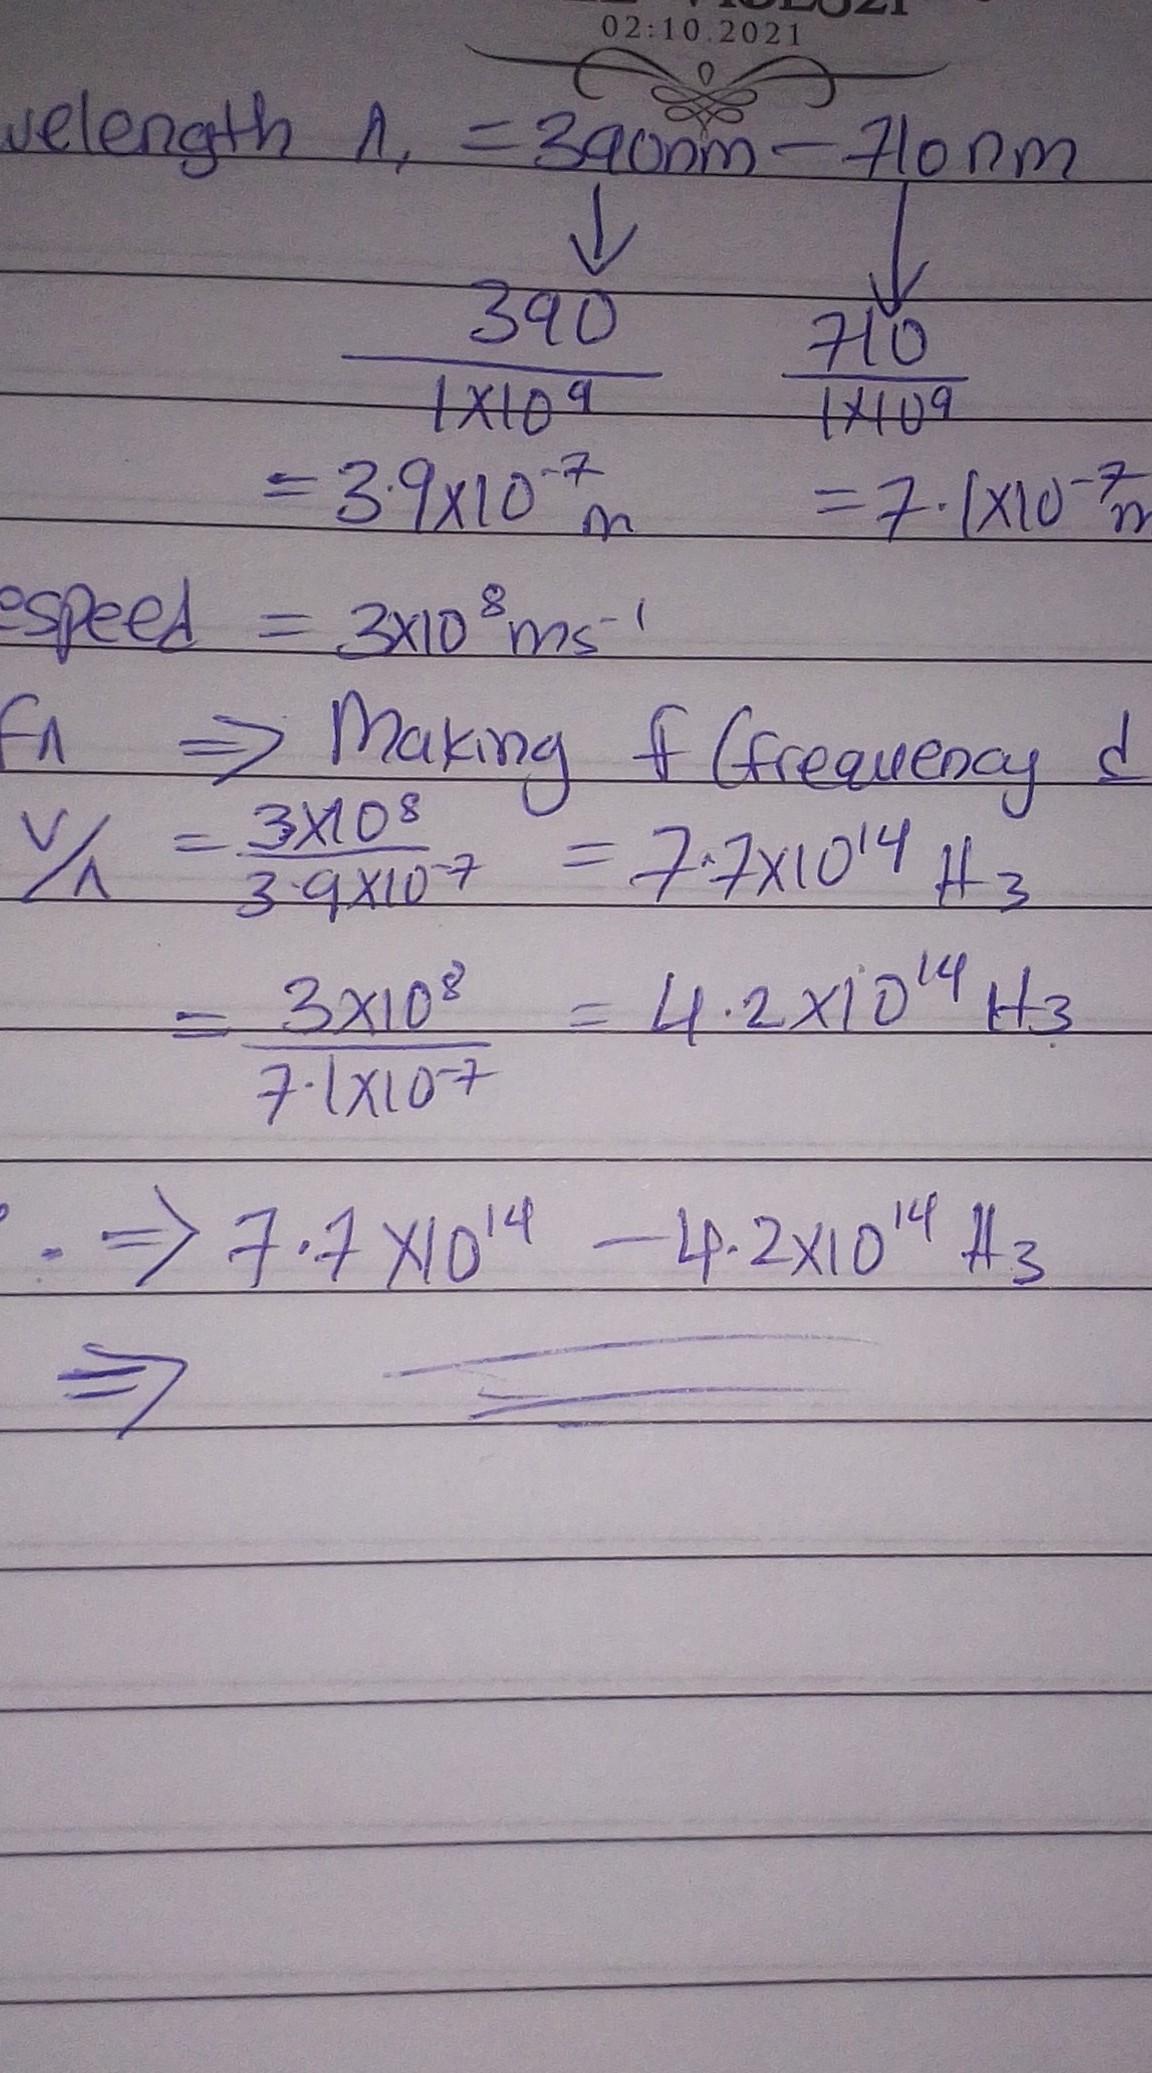 02:10.2021
velength λ, = 390nm - 710nm
390 710
1x10⁹ 1x10⁹
= 3.9x10⁻⁷m = 7.1x10⁻⁷m
espeed = 3x10⁸ms⁻¹
fλ ⇒ Making f (frequency
V/λ = 3x10⁸ / 3.9x10⁻⁷ = 7.7x10¹⁴ Hz
= 3x10⁸ / 7.1x10⁻⁷ = 4.2x10¹⁴ Hz
⇒ 7.7x10¹⁴ - 4.2x10¹⁴ Hz
⇒